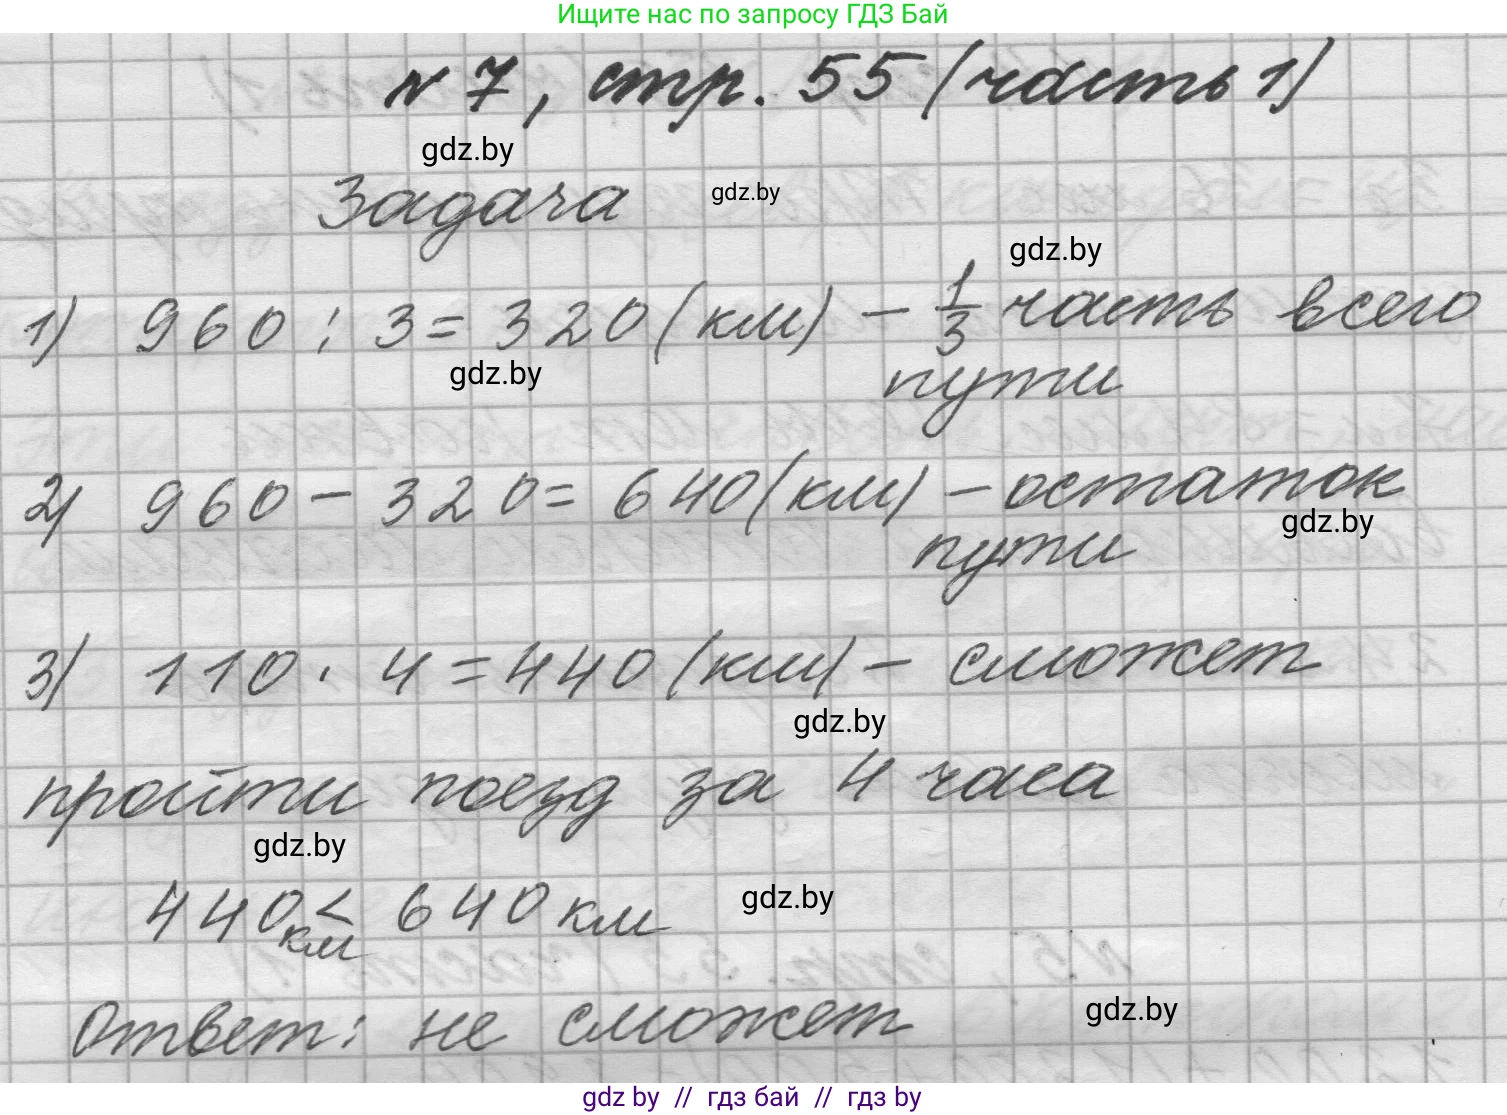 Ищите нас по запросу ГДЗ Бай
№ 7, стр. 55 (часть 1)
gdz.by
Задача gdz.by
gdz.by
1) 960 : 3 = 320 (км) – 1/3 часть всего
gdz.by пути
2) 960 – 320 = 640 (км) – остаток
gdz.by
пути
3) 110 · 4 = 440 (км) – сможет
gdz.by
пройти поезд за 4 часа
gdz.by
440 км < 640 км gdz.by
Ответ: не сможет gdz.by
gdz by // гдз бай // гдз by